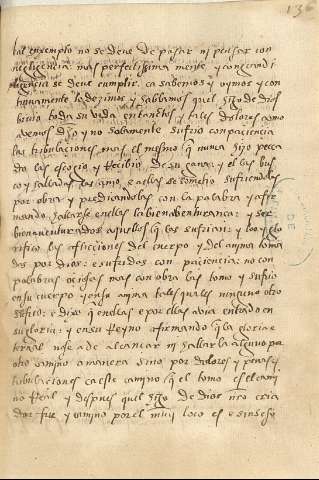 136
tal enxemplo no se deue de pasar ni pensar con
negligencia: mas perfectissima mente y con grand
igencia se deue cumplir. ca sabemos y vimos y con
tinuamente lo dezimos y sabbamos quel hijo de dios
biuio toda su vida en tantos y tales dolores como
auemos dho y no solamente sufrio con paciencia
las tribulaciones. mas el mesmo q nunca hizo pecca
do las escogio y Recibio de su gana: y el las bus
co y sallradas las amo. e a ellas se sometio sufriendolas
por obra y predicandolas con la palabra y afir
mando. hallarse en ellas la bienabenturanca: y ser
bienauenturados aquellos q las sufrian: y los y clo
rifico las aflicciones del cuerpo y del anima toma
das por dios: e sufridas con paciencia: no con
palabras ociosas mas con obra las tomo y sufrio
en su cuerpo y en su anima tales quales ninguno otro
sufrio: e dixo q en ellas e por ellas auia entrado en
su gloria: y en su Reyno afirmando q la gloria e
ternal no se a de alcancar ni hallar la alguno por
otro camino o manera sino por dolores y penas y
tribulaciones ca este camino q el tomo es el cami
no Real. y despues quel hijo de dios nro cria
dor fue y camino por el muy loco es e sin seso